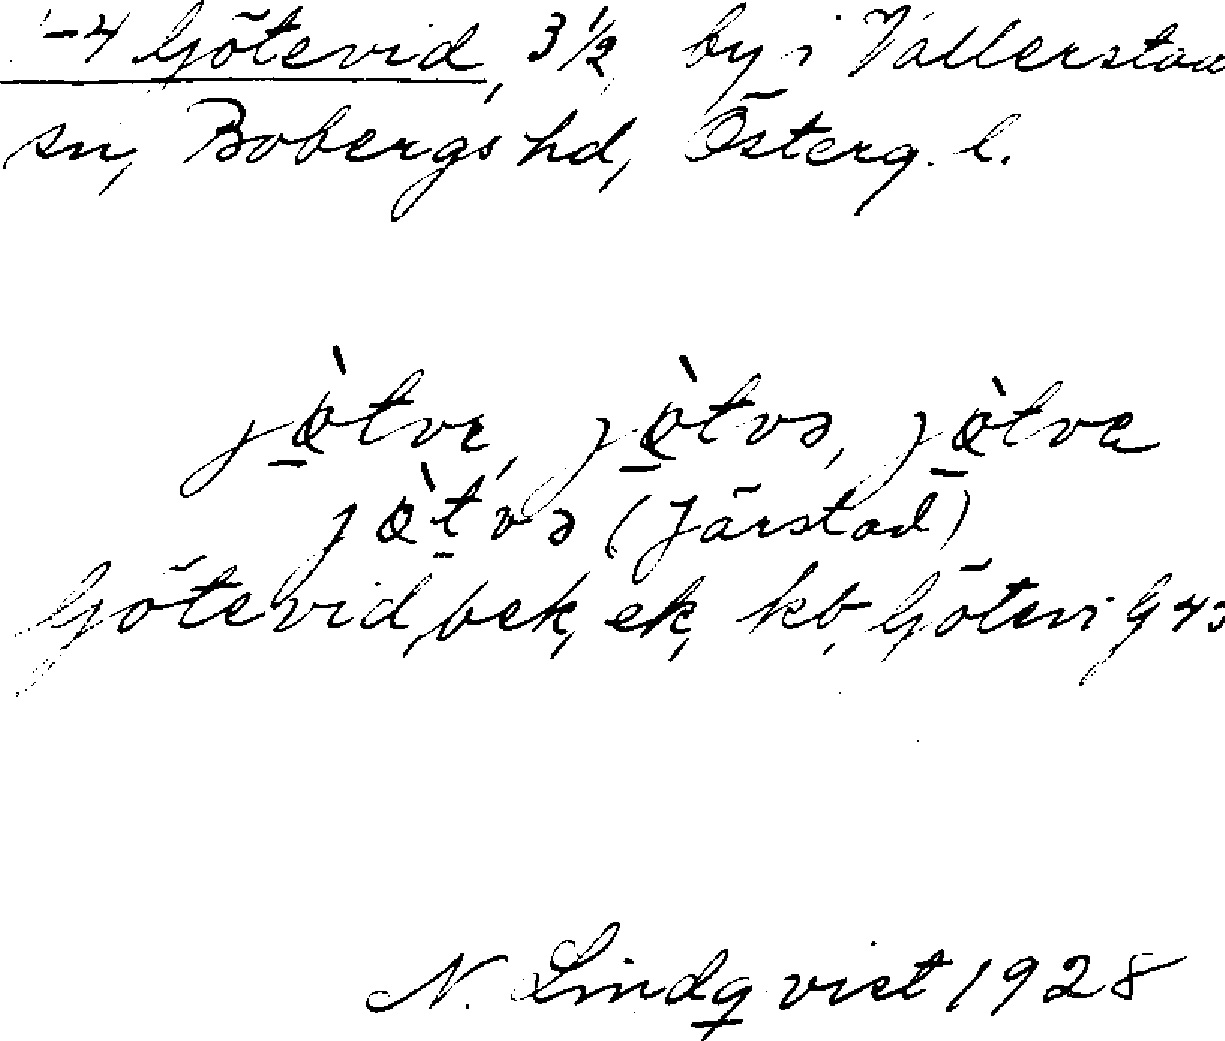 -4 Götevid, 3½, by i Vallerstad
sn, Bobergs hd, Österg. l.
jø̀tve, jø̀tvə, jø̀tve
jø̀tvə (Järstad)
Götevid, bek, ek, kb, Götevi G 45
N. Lindqvist 1928